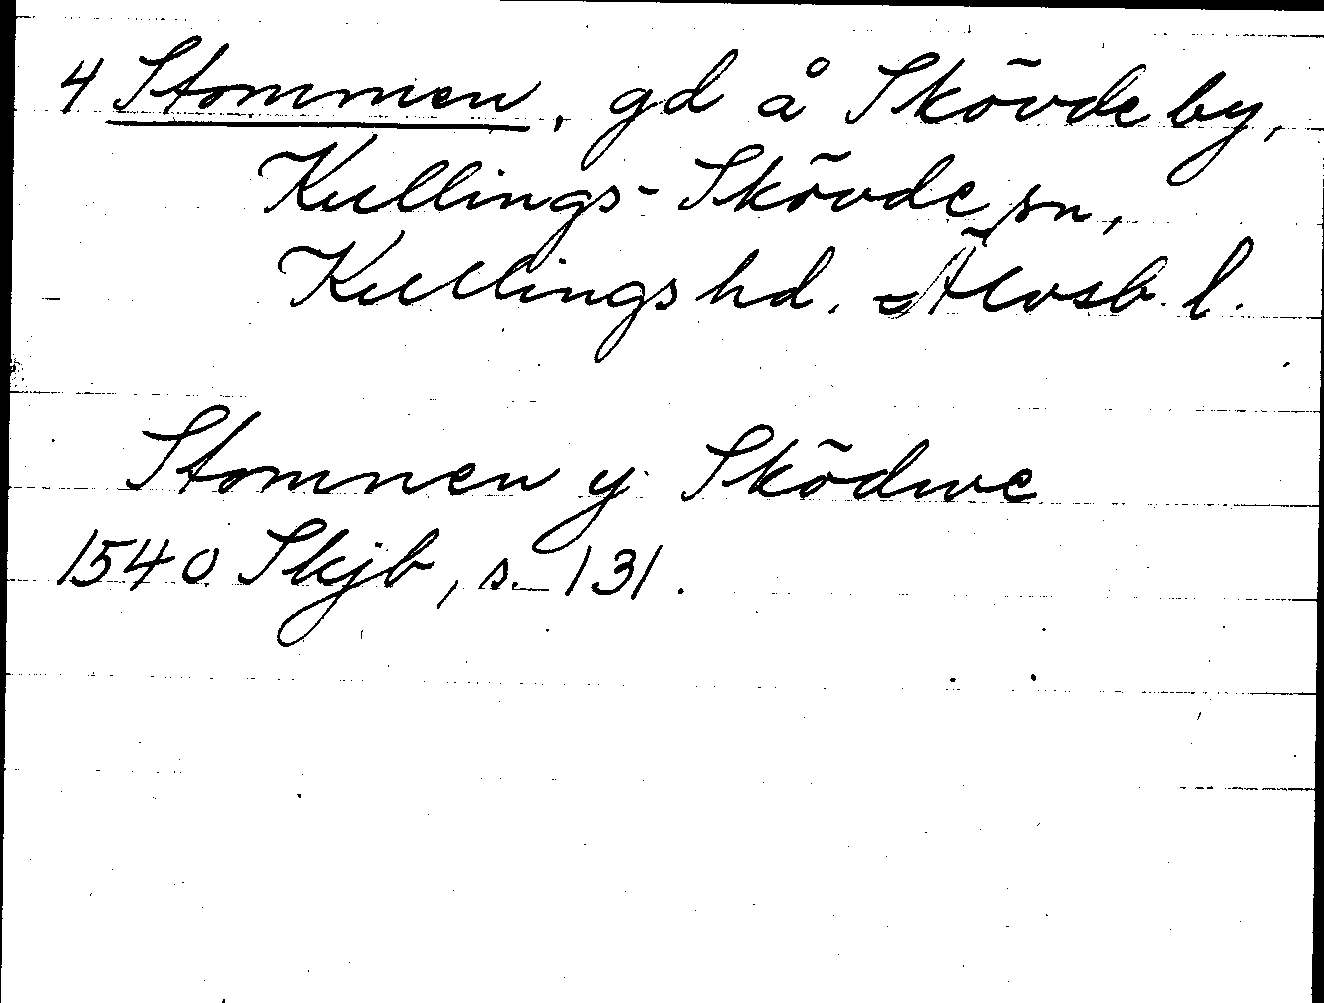 4 Stommen, gd å Skövde by,
Kullings-Skövde sn,
Kullings hd. Älvsb. l.
Stomnen y Sködwe
1540 Skjb, s. 131.